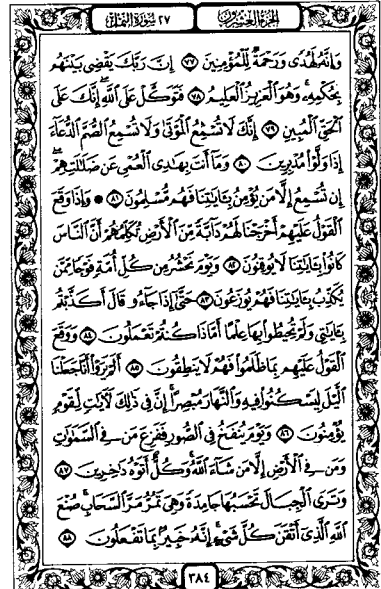 الجزء العشرون ٢٧ سورة النمل
وَإِنَّهُۥ لَهُدًى وَرَحْمَةٌ لِّلْمُؤْمِنِينَ ٧٧ إِنَّ رَبَّكَ يَقْضِى بَيْنَهُم
بِحُكْمِهِۦ وَهُوَ ٱلْعَزِيزُ ٱلْعَلِيمُ ٧٨ فَتَوَكَّلْ عَلَى ٱللَّهِ إِنَّكَ عَلَى
ٱلْحَقِّ ٱلْمُبِينِ ٧٩ إِنَّكَ لَا تُسْمِعُ ٱلْمَوْتَىٰ وَلَا تُسْمِعُ ٱلصُّمَّ ٱلدُّعَآءَ
إِذَا وَلَّوْا۟ مُدْبِرِينَ ٨٠ وَمَآ أَنتَ بِهَٰدِى ٱلْعُمْىِ عَن ضَلَٰلَتِهِمْ
إِن تُسْمِعُ إِلَّا مَن يُؤْمِنُ بِـَٔايَٰتِنَا فَهُم مُّسْلِمُونَ ٨١ ۞ وَإِذَا وَقَعَ
ٱلْقَوْلُ عَلَيْهِمْ أَخْرَجْنَا لَهُمْ دَآبَّةً مِّنَ ٱلْأَرْضِ تُكَلِّمُهُمْ أَنَّ ٱلنَّاسَ
كَانُوا۟ بِـَٔايَٰتِنَا لَا يُوقِنُونَ ٨٢ وَيَوْمَ نَحْشُرُ مِن كُلِّ أُمَّةٍ فَوْجًا مِّمَّن
يُكَذِّبُ بِـَٔايَٰتِنَا فَهُمْ يُوزَعُونَ ٨٣ حَتَّىٰٓ إِذَا جَآءُو قَالَ أَكَذَّبْتُم
بِـَٔايَٰتِى وَلَمْ تُحِيطُوا۟ بِهَا عِلْمًا أَمَّاذَا كُنتُمْ تَعْمَلُونَ ٨٤ وَوَقَعَ
ٱلْقَوْلُ عَلَيْهِم بِمَا ظَلَمُوا۟ فَهُمْ لَا يَنطِقُونَ ٨٥ أَلَمْ يَرَوْا۟ أَنَّا جَعَلْنَا
ٱلَّيْلَ لِيَسْكُنُوا۟ فِيهِ وَٱلنَّهَارَ مُبْصِرًا إِنَّ فِى ذَٰلِكَ لَـَٔايَٰتٍ لِّقَوْمٍ
يُؤْمِنُونَ ٨٦ وَيَوْمَ يُنفَخُ فِى ٱلصُّورِ فَفَزِعَ مَن فِى ٱلسَّمَٰوَٰتِ
وَمَن فِى ٱلْأَرْضِ إِلَّا مَن شَآءَ ٱللَّهُ وَكُلٌّ أَتَوْهُ دَٰخِرِينَ ٨٧
وَتَرَى ٱلْجِبَالَ تَحْسَبُهَا جَامِدَةً وَهِىَ تَمُرُّ مَرَّ ٱلسَّحَابِ صُنْعَ
ٱللَّهِ ٱلَّذِىٓ أَتْقَنَ كُلَّ شَىْءٍ إِنَّهُۥ خَبِيرٌۢ بِمَا تَفْعَلُونَ ٨٨
٣٨٤